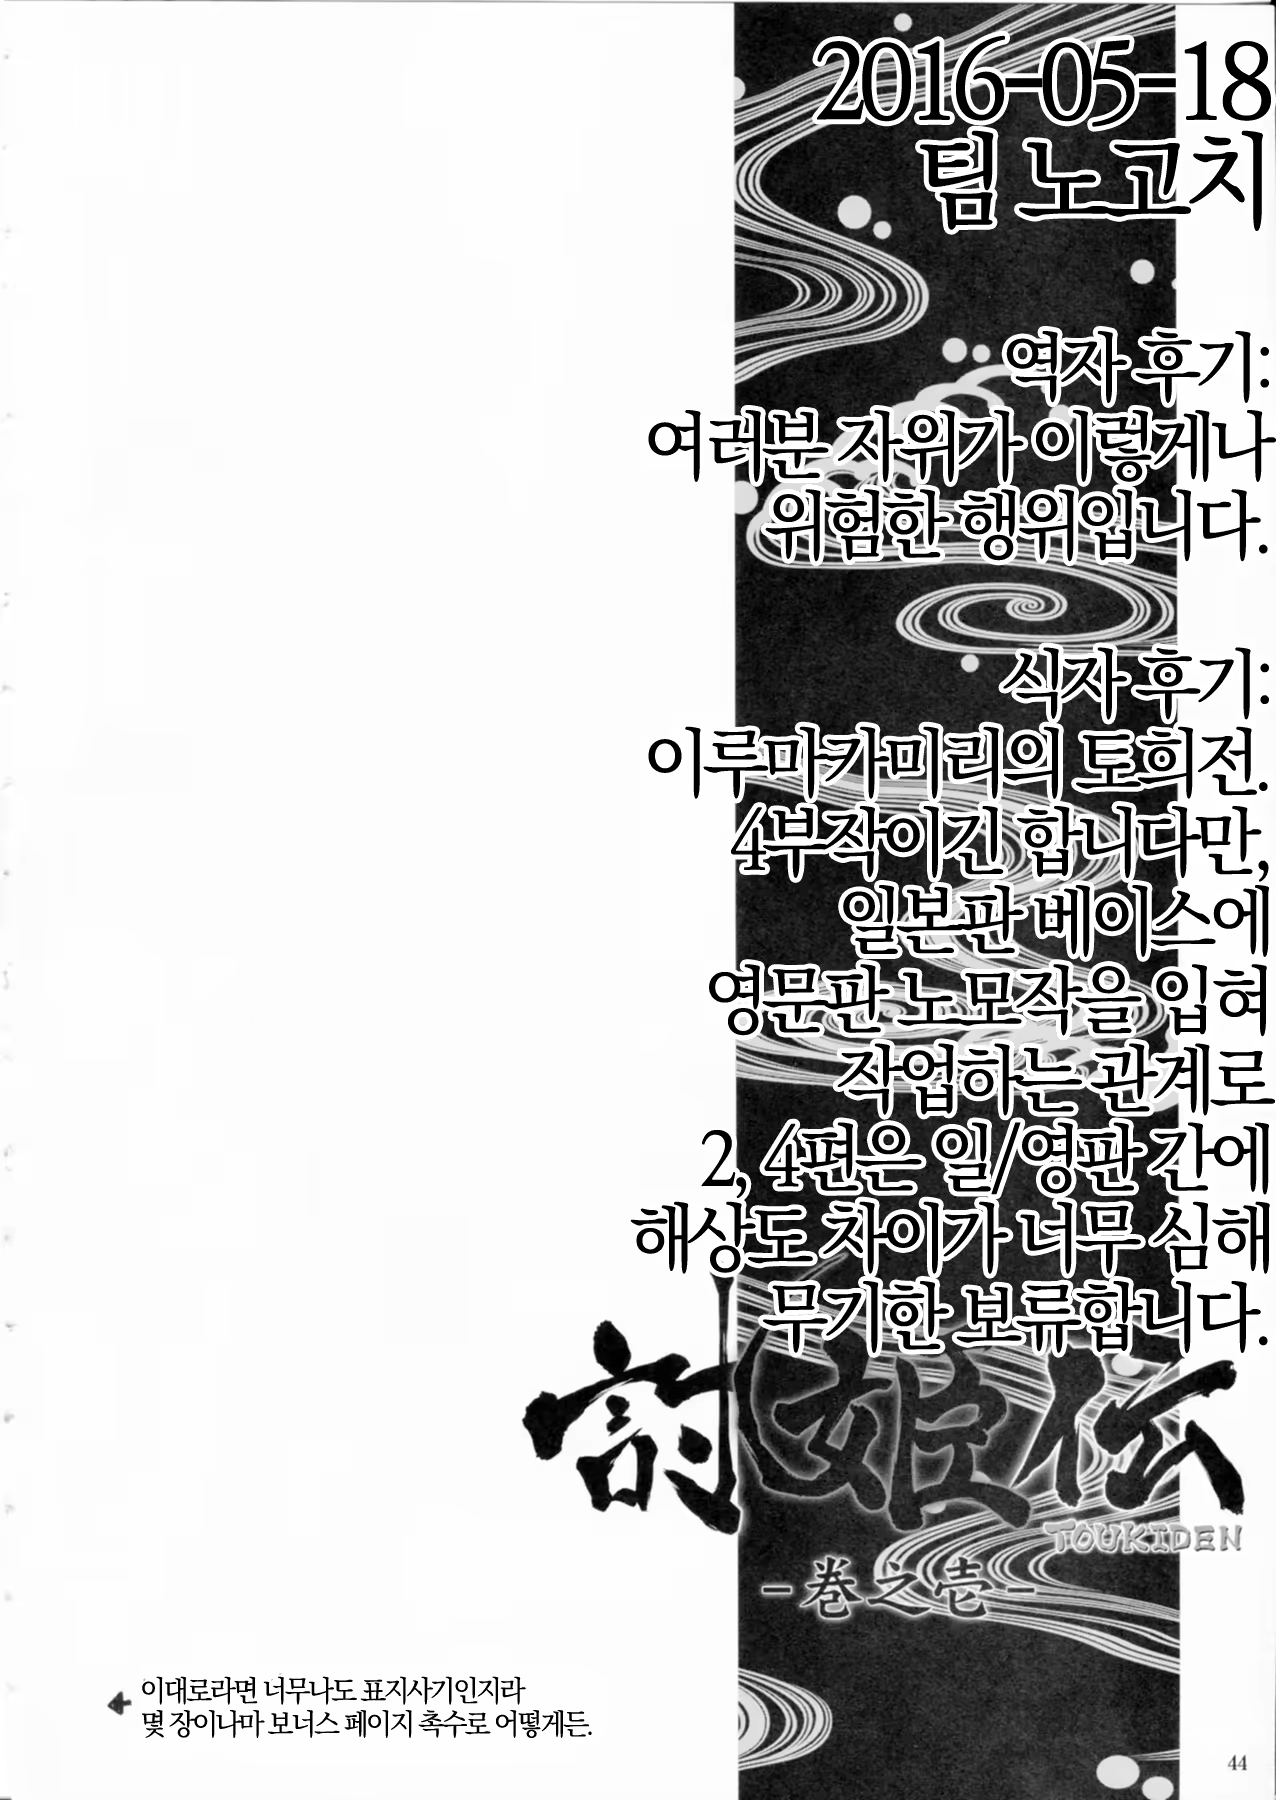 2016-05-18
팀 노고치
역자 후기:
여러분 자위가 이렇게나
위험한 행위입니다.
식자 후기:
이루마카미리의 토희전.
4부작이긴 합니다만,
일본판 베이스에
영문판 노모작을 입혀
작업하는 관계로
2, 4편은 일/영판 간에
해상도 차이가 너무 심해
무기한 보류합니다.
討姫伝
TOUKIDEN
-巻之壱-
이대로라면 너무나도 표지사기인지라
몇 장이나마 보너스 페이지 촉수로 어떻게든.
44